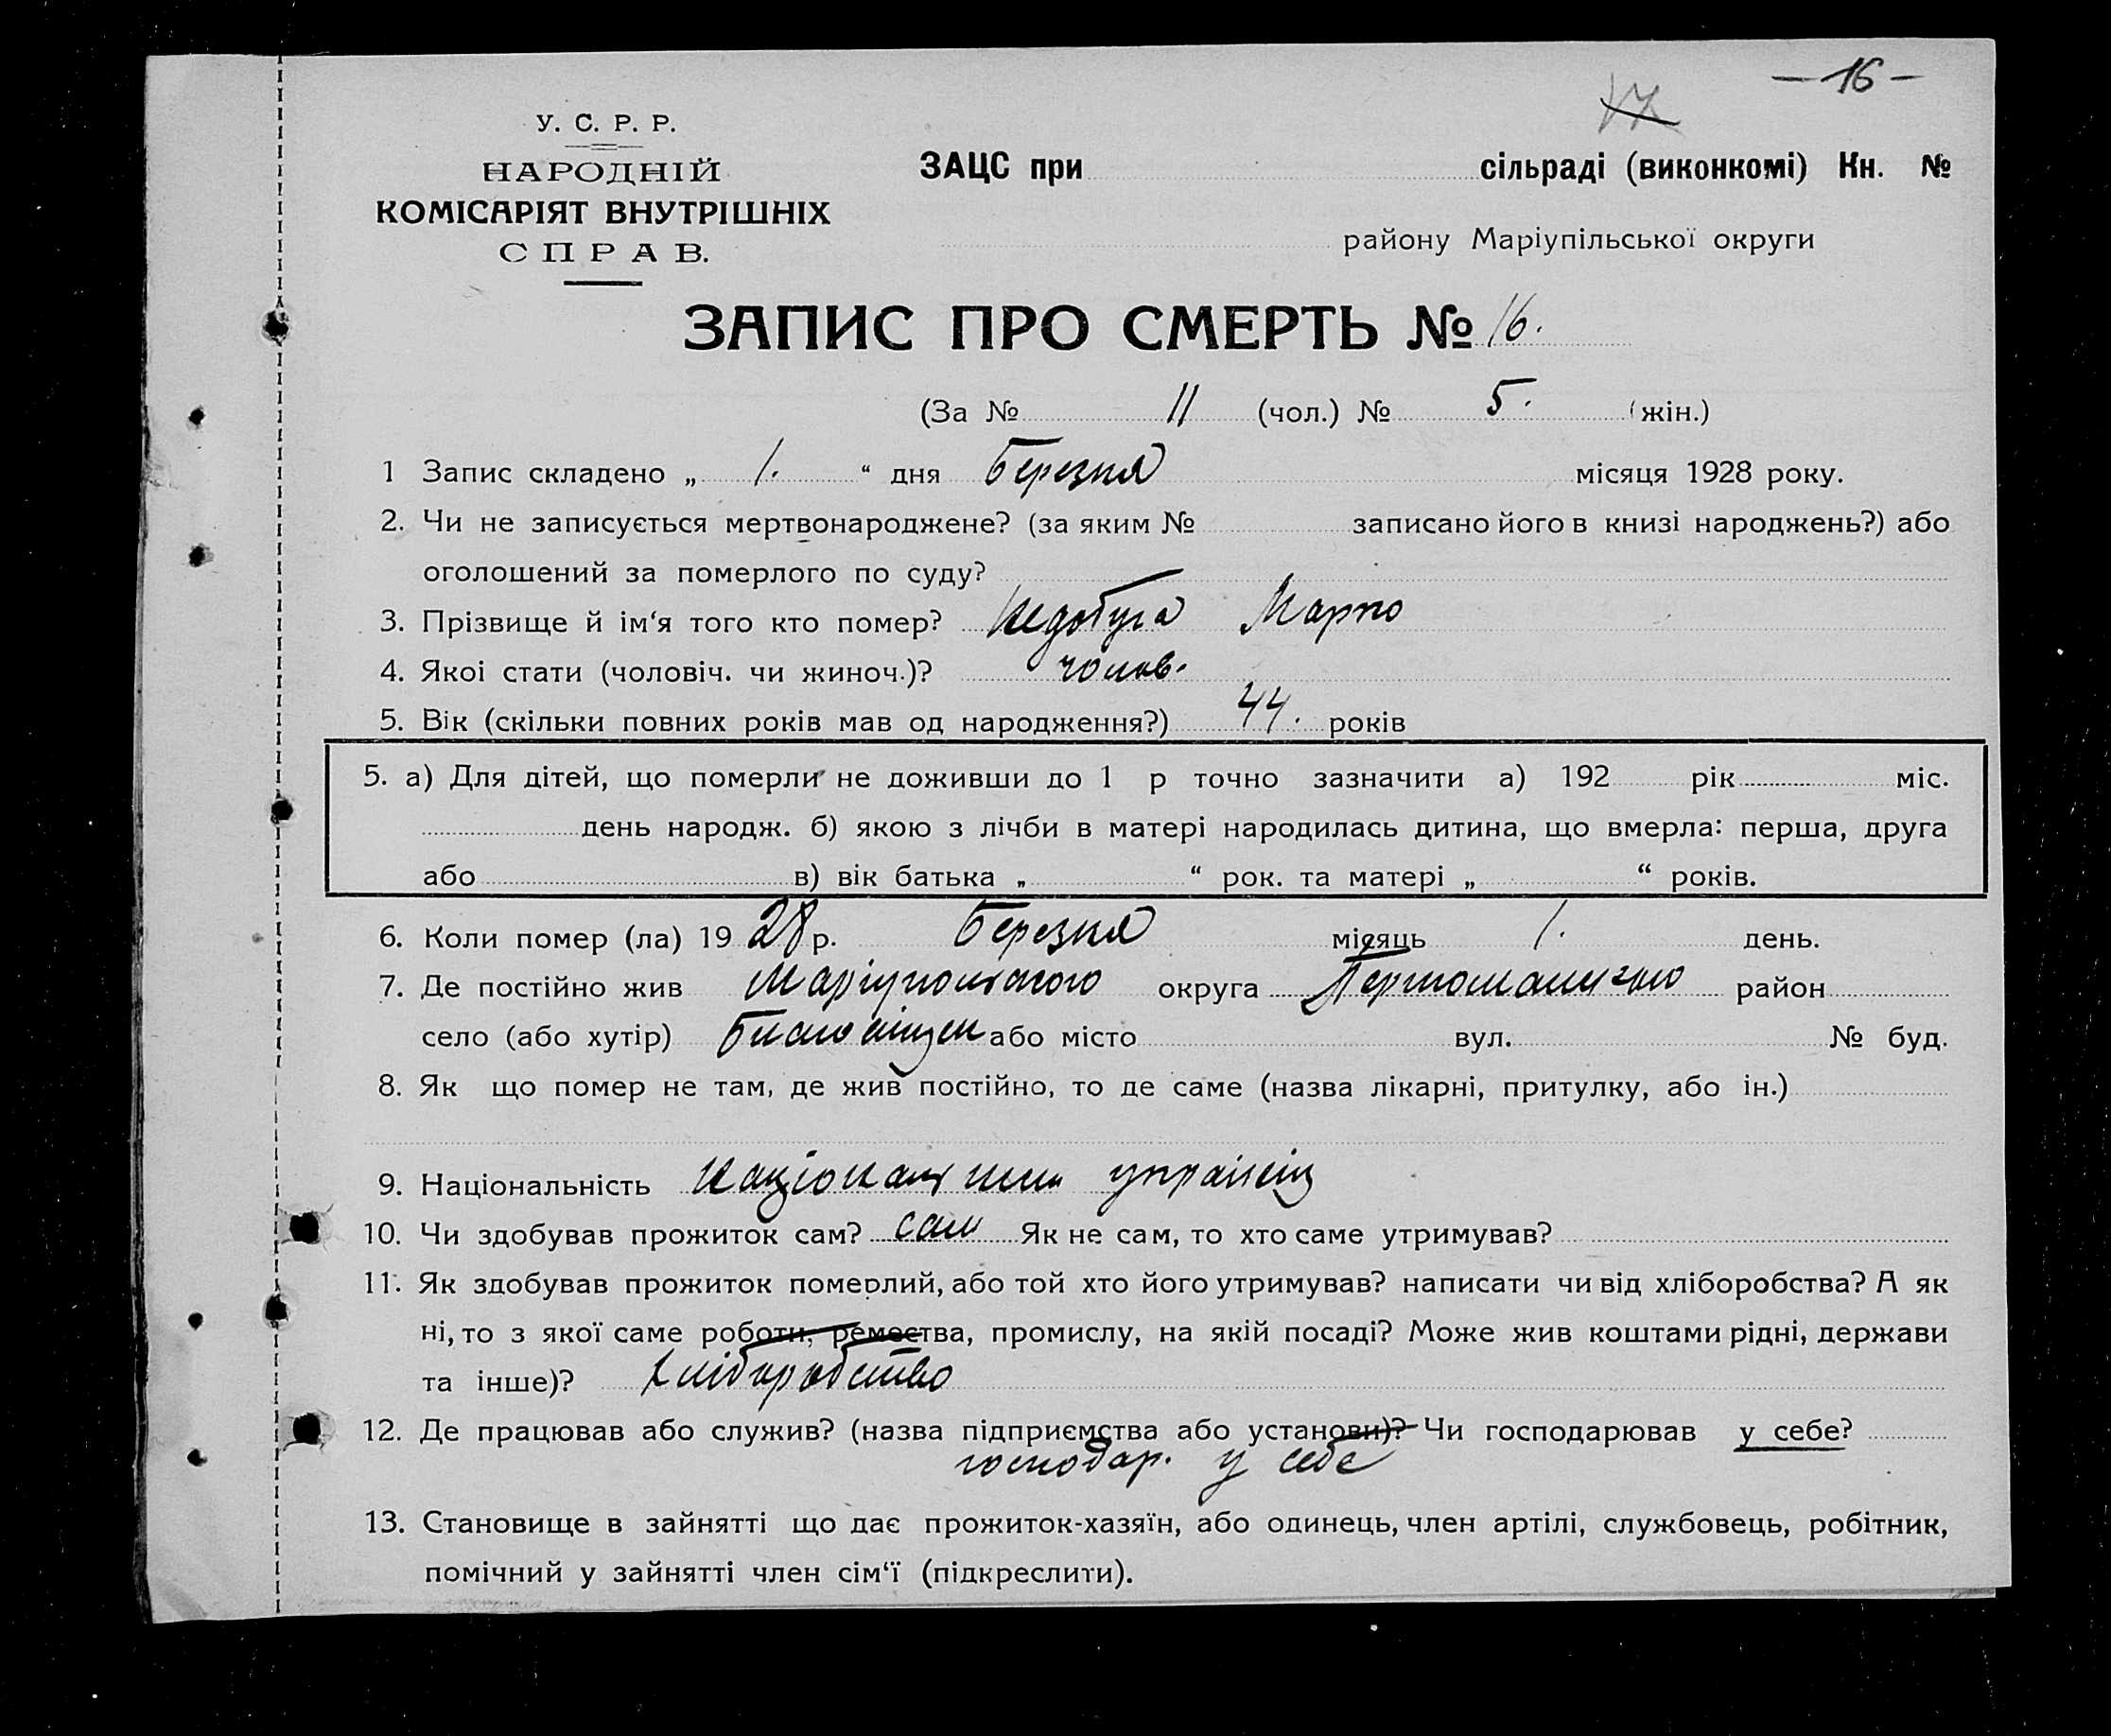 - 16 -
17
У. С. Р. Р.
НАРОДНІЙ
КОМІСАРІЯТ ВНУТРІШНІХ
СПРАВ.
ЗАЦС при сільраді (виконкомі) Кн. №
району Маріупільської округи
ЗАПИС ПРО СМЕРТЬ № 16.
(За № 11 (чол.) № 5. (жін.)
1 Запис складено „ 1. “ дня Березня місяця 1928 року.
2. Чи не записується мертвонароджене? (за яким № записано його в книзі народжень?) або
оголошений за померлого по суду?
3. Прізвище й ім‘я того кто помер? Недобуга Марко
4. Якоі стати (чоловіч. чи жиноч.)? чолов.
5. Вік (скільки повних років мав од народження?) 44. років
5. а) Для дітей, що померли не доживши до 1 р точно зазначити а) 192 рік міс.
день народж. б) якою з лічби в матері народилась дитина, що вмерла: перша, друга
або в) вік батька „ “ рок. та матері „ “ років.
6. Коли помер (ла) 19 28 р. Березня місяць 1. день.
7. Де постійно жив Маріупольского округа район
село (або хутір) або місто вул. № буд.
8. Як що помер не там, де жив постійно, то де саме (назва лікарні, притулку, або ін.)
9. Національність українец
10. Чи здобував прожиток сам? сам Як не сам, то хто саме утримував?
11. Як здобував прожиток померлий, або той хто його утримував? написати чи від хліборобства? А як
ні, то з якої саме роботи, ремества, промислу, на якій посаді? Може жив коштами рідні, держави
та інше)? хліборобство
12. Де працював або служив? (назва підприємства або установи)? Чи господарював у себе?
господар. у себе
13. Становище в зайнятті що дає прожиток-хазяїн, або одинець, член артілі, службовець, робітник,
помічний у зайнятті член сім‘ї (підкреслити).